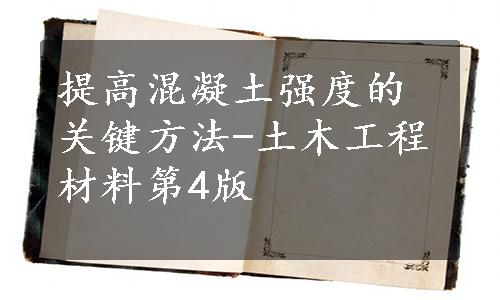 提高混凝土强度的
关键方法-土木工程
材料第4版